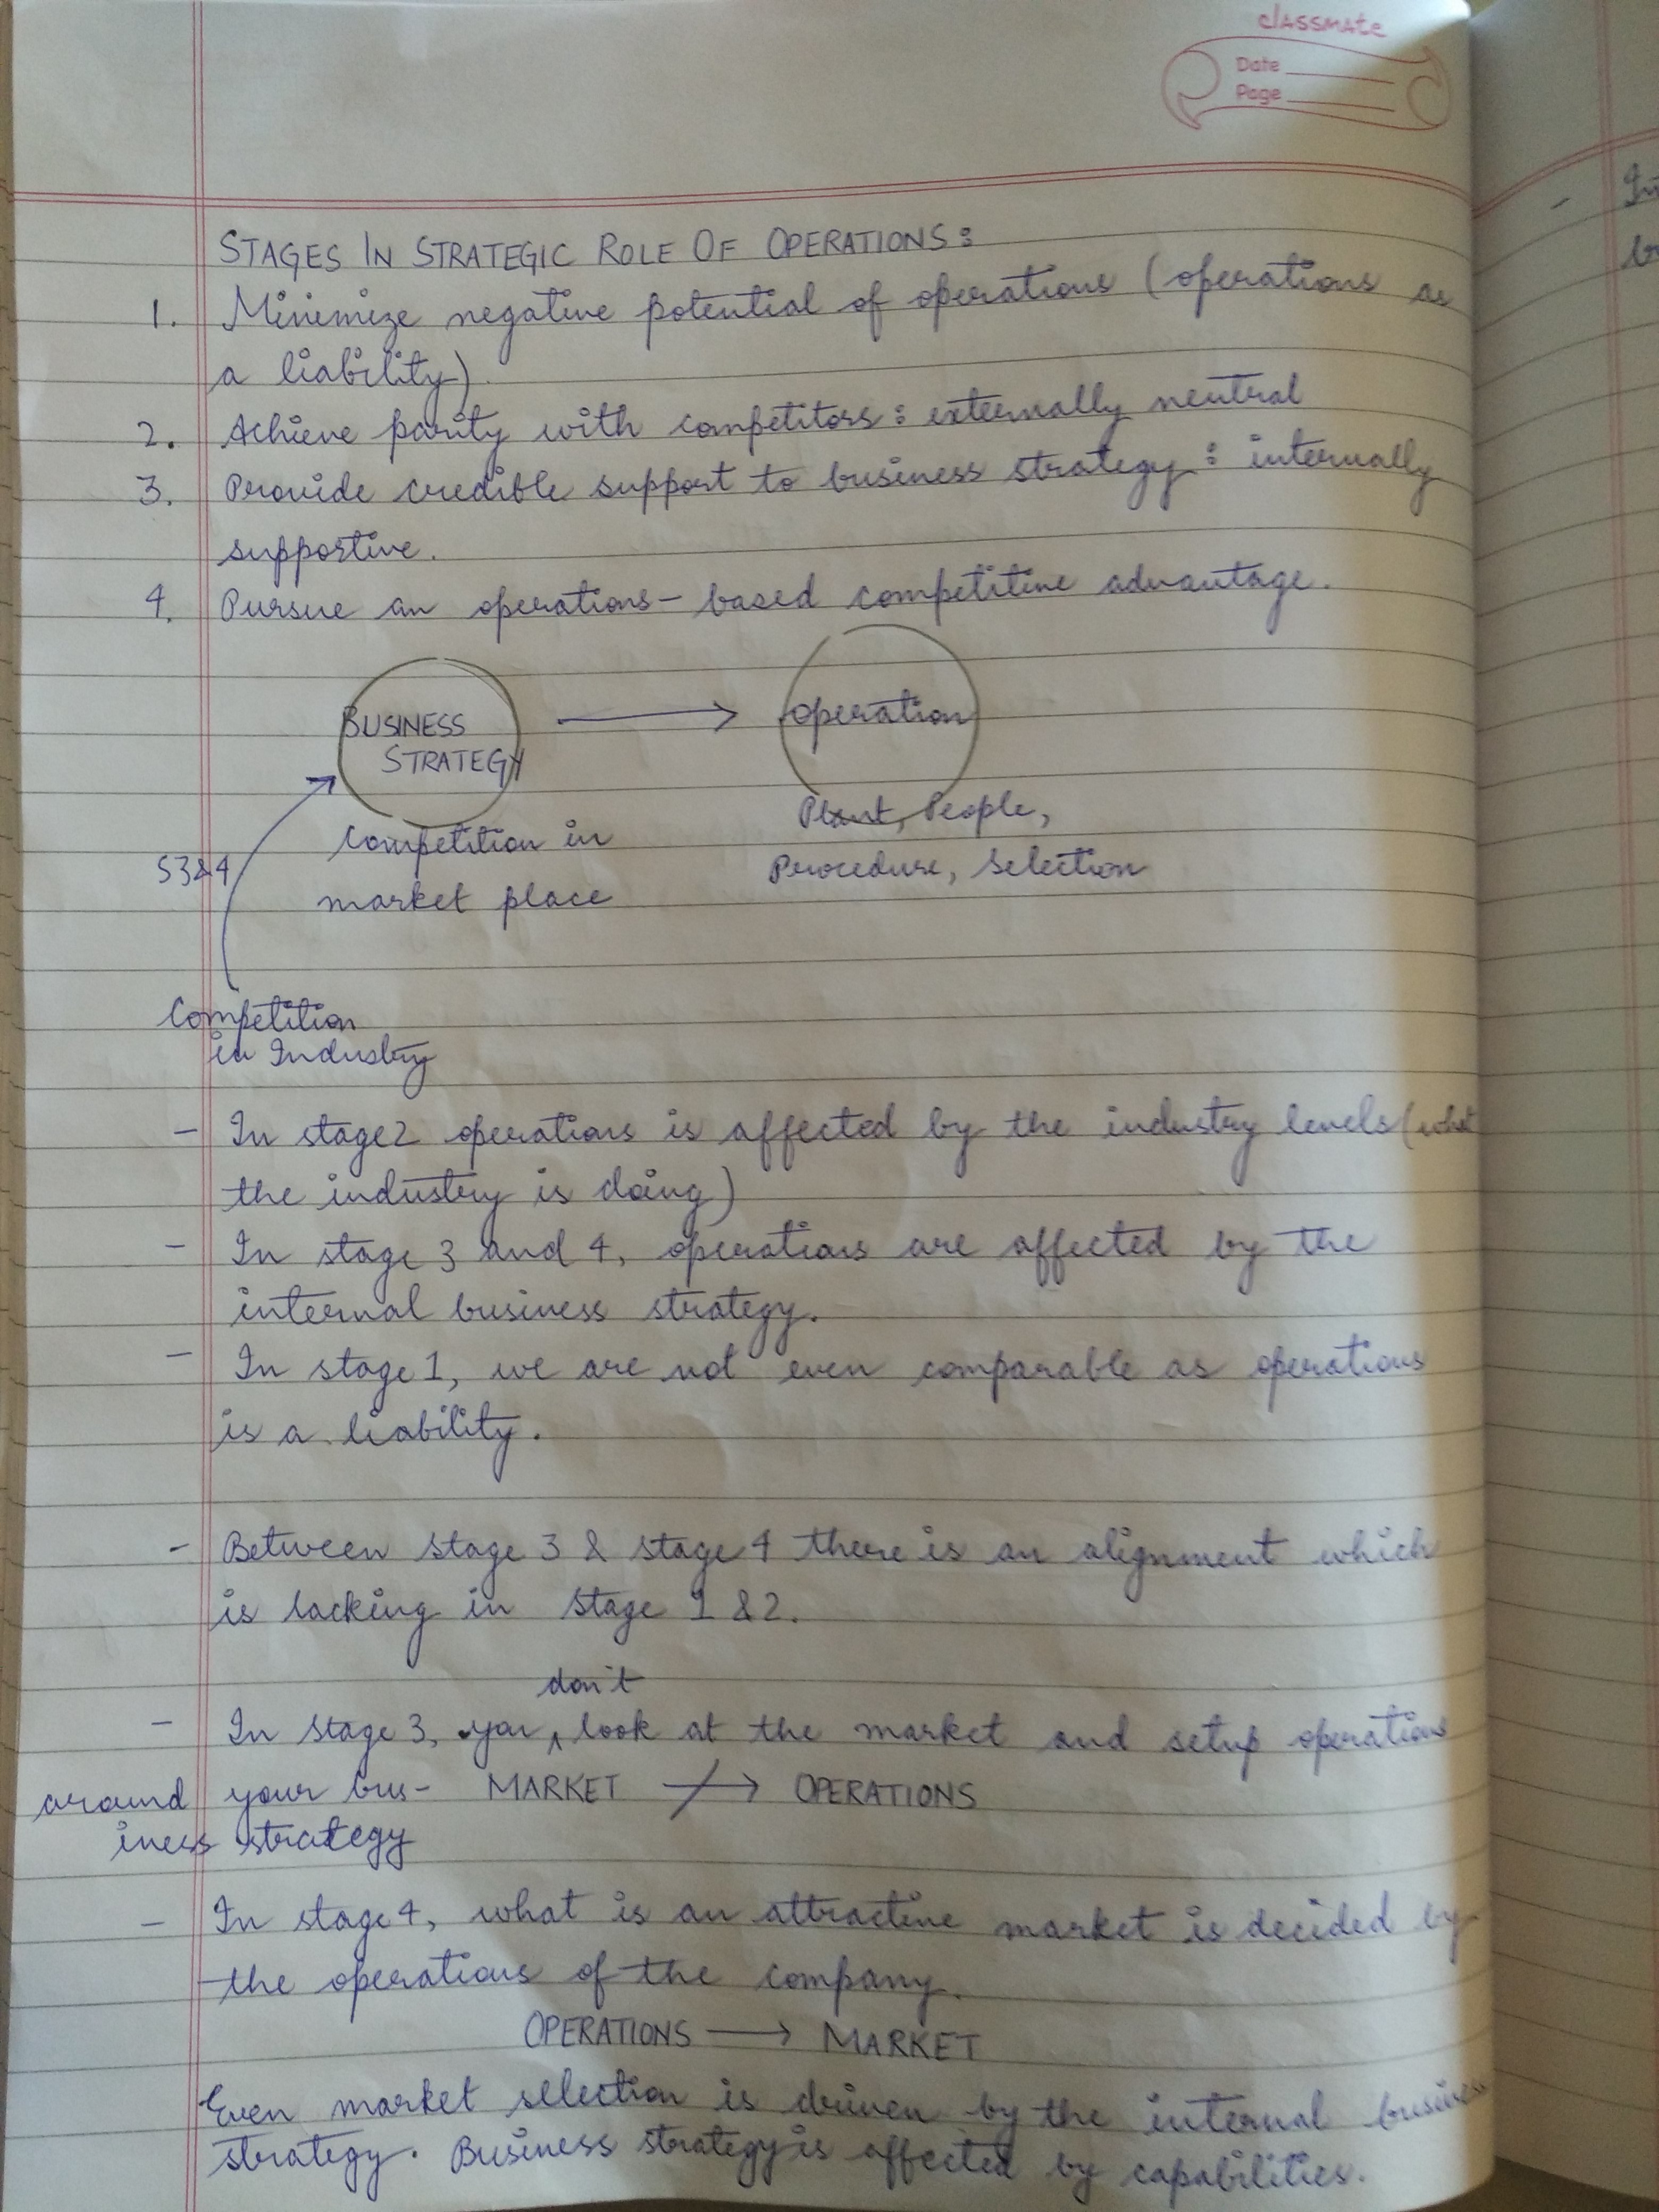 classmate
Date
Page
STAGES IN STRATEGIC ROLE OF OPERATIONS:
1. Minimize negative potential of operations (operations as
a liability)
2. Achieve parity with competitors: externally neutral
3. Provide credible support to business strategy: internally
supportive.
4. Pursue an operations-based competitive advantage.
BUSINESS
STRATEGY
operation
Competition in
market place
Plant, People,
Procedure, Selection
S3&4
Competition
in Industry
- In stage2 operations is affected by the industry levels (what
the industry is doing)
- In stage 3 and 4, operations are affected by the
internal business strategy.
- In stage 1, we are not even comparable as operations
is a liability.
- Between stage 3 & stage 4 there is an alignment which
is lacking in stage 1 & 2.
don't
- In stage 3, you look at the market and setup operations
around your bus- MARKET OPERATIONS
iness strategy
- In stage 4, what is an attractive market is decided by
the operations of the company.
OPERATIONS → MARKET
Even market selection is driven by the internal business
strategy. Business strategy is affected by capabilities.